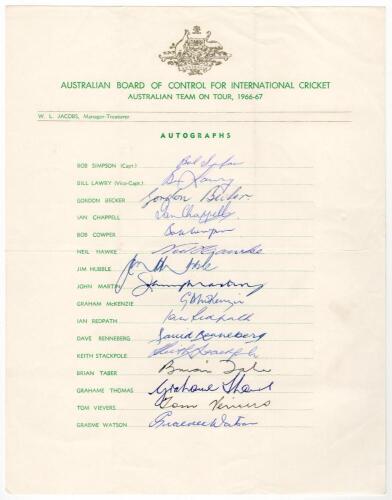 AUSTRALIAN BOARD OF CONTROL FOR INTERNATIONAL CRICKET
AUSTRALIAN TEAM ON TOUR, 1966-67
W. L. JACOBS, Manager-Treasurer
AUTOGRAPHS
BOB SIMPSON (Capt.) Bob Simpson
BILL LAWRY (Vice-Capt.) Bill Lawry
GORDON BECKER Gordon Becker
IAN CHAPPELL Ian Chappell
BOB COWPER Bob Cowper
NEIL HAWKE Neil Hawke
JIM HUBBLE Jim Hubble
JOHN MARTIN Johnny Martin
GRAHAM McKENZIE G McKenzie
IAN REDPATH Ian Redpath
DAVE RENNEBERG David Renneberg
KEITH STACKPOLE Keith Stackpole
BRIAN TABER Brian Taber
GRAHAME THOMAS Grahame Thomas
TOM VIEVERS Tom Veivers
GRAEME WATSON Graeme Watson